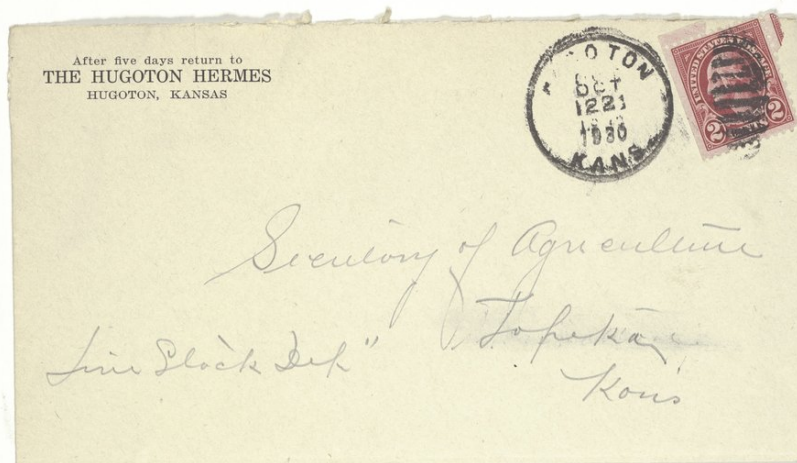 After five days return to
THE HUGOTON HERMES
HUGOTON, KANSAS
OTON
OCT
1930
KANS
UNITED STATES POSTAGE
2 2
Secretary of Agriculture
Topeka,
Kans
Live Stock Dep"